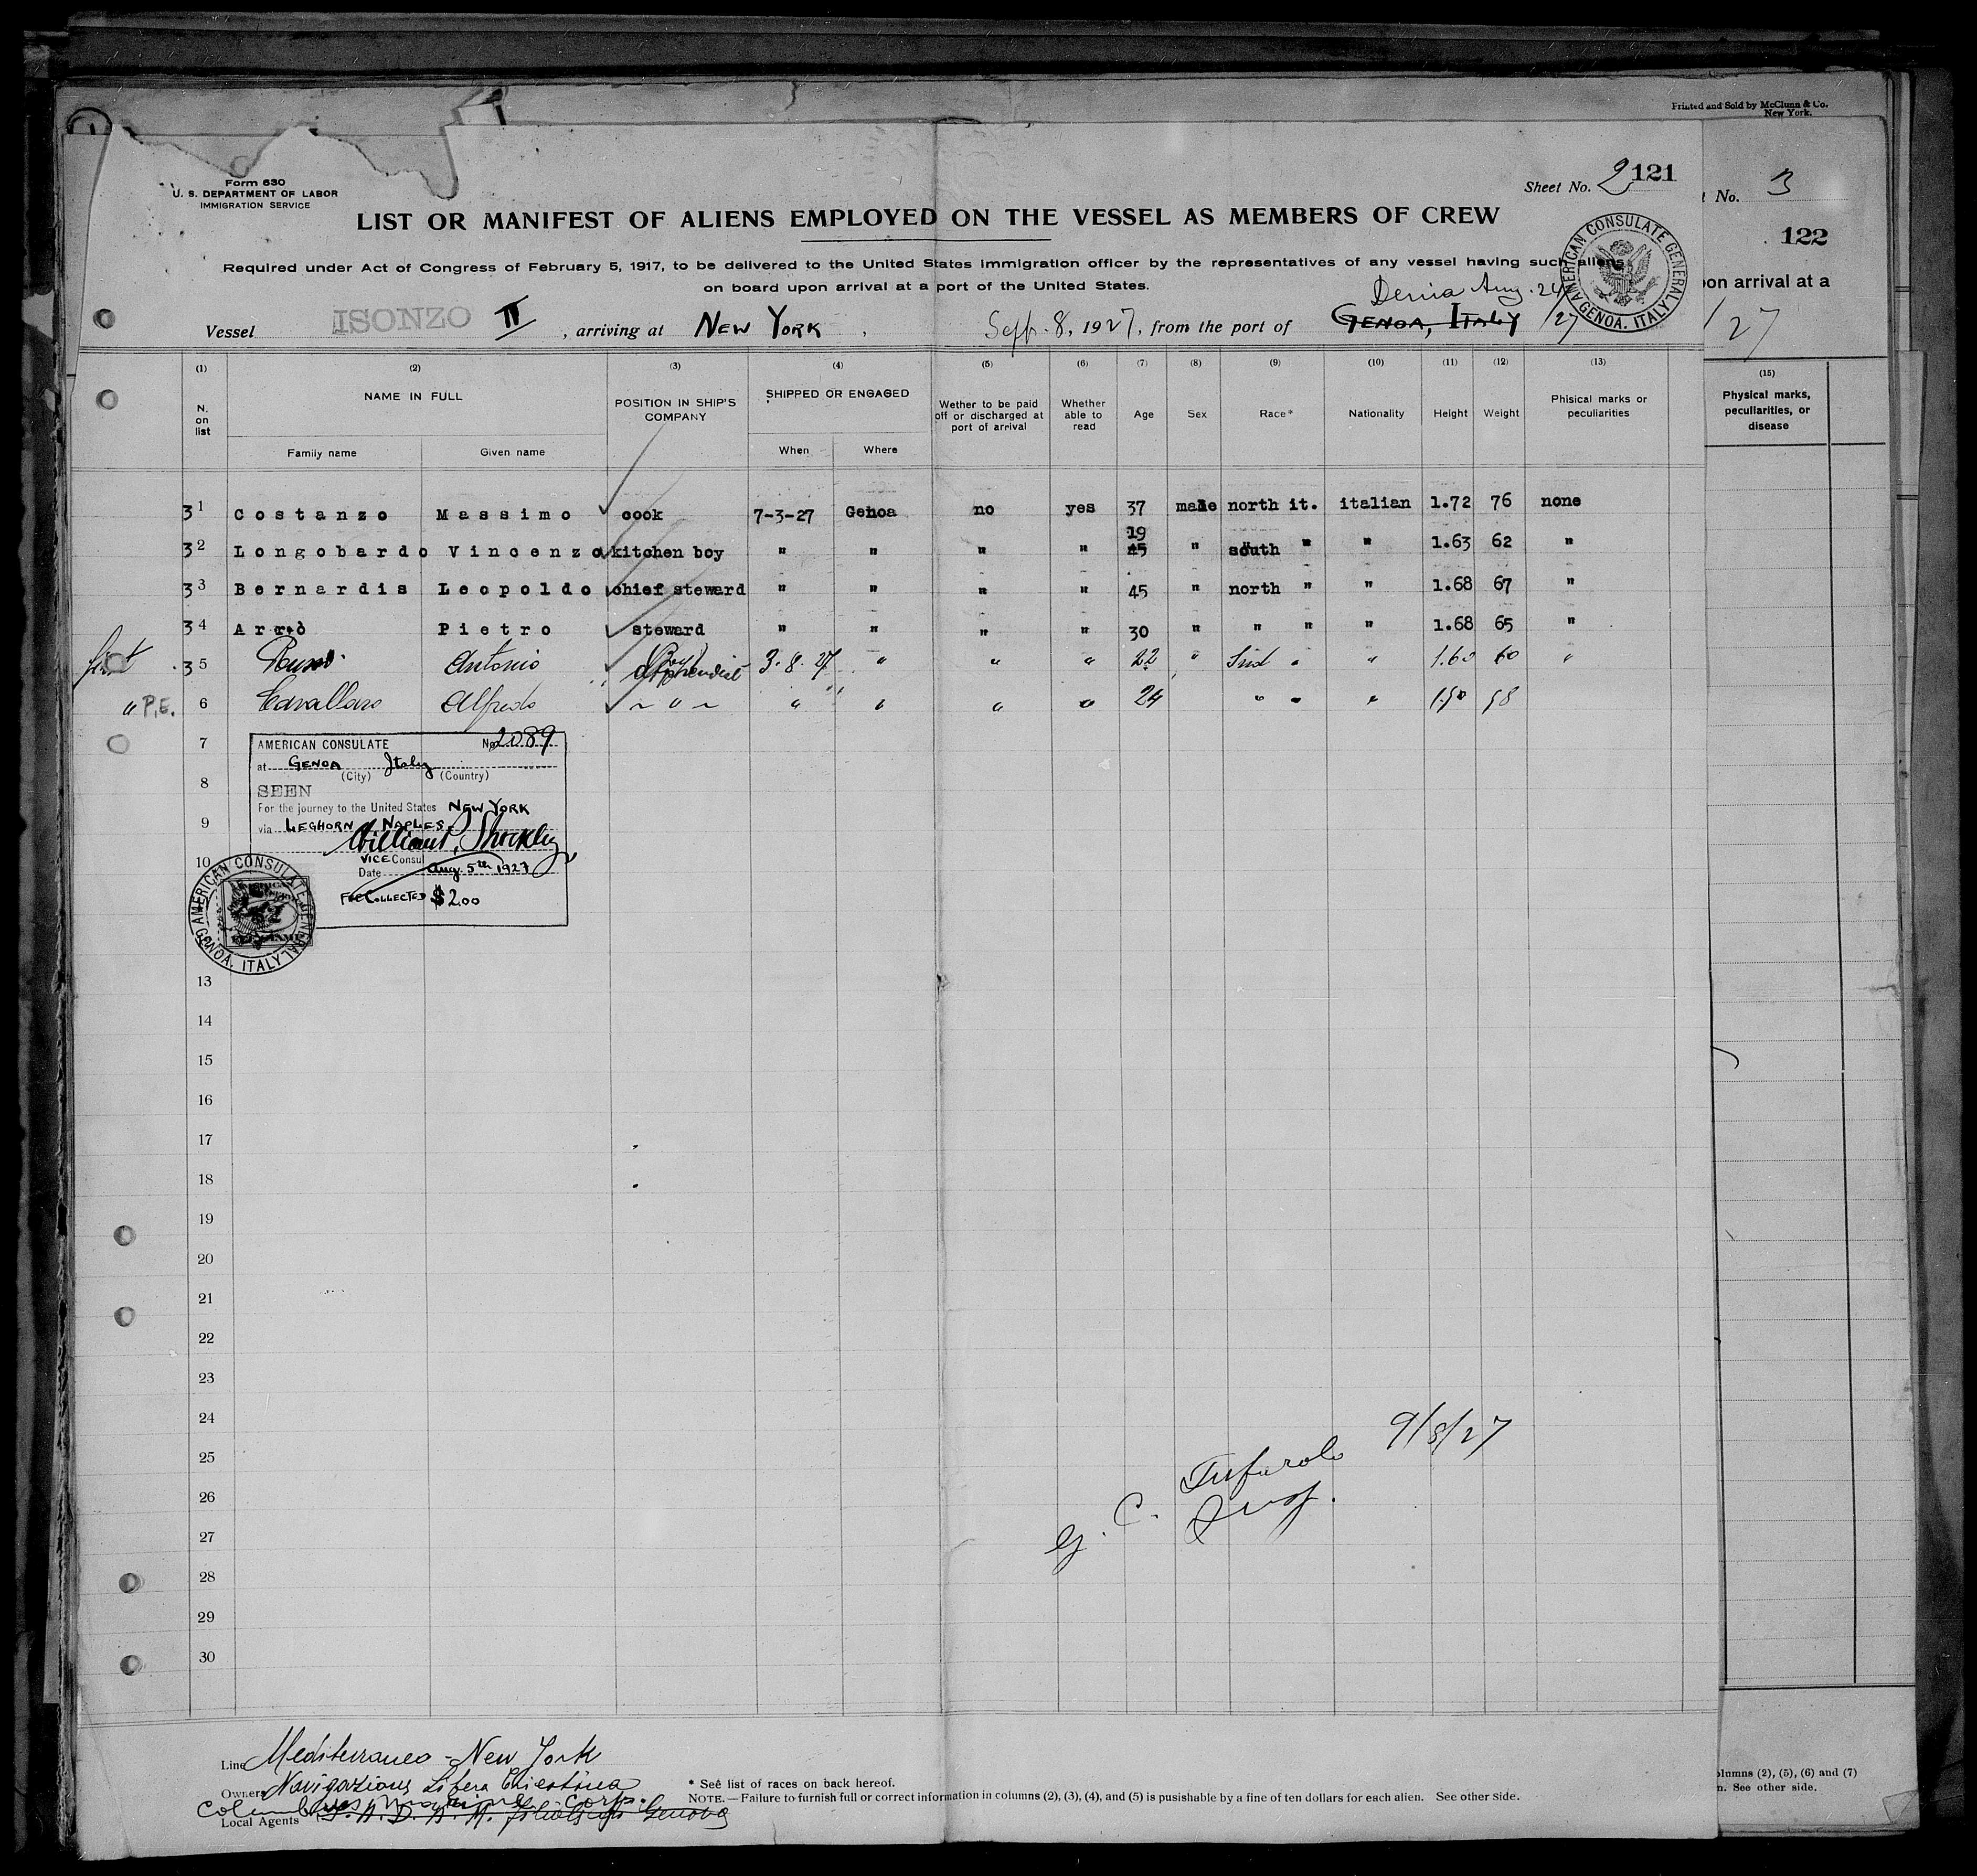 Printed and Sold by McClunn & Co.
New York.
Form 630
U. S. DEPARTMENT OF LABOR
IMMIGRATION SERVICE
Sheet No. 2 121
t No. 3
122
LIST OR MANIFEST OF ALIENS EMPLOYED ON THE VESSEL AS MEMBERS OF CREW
Required under Act of Congress of February 5, 1917, to be delivered to the United States immigration officer by the representatives of any vessel having such aliens
on board upon arrival at a port of the United States.
on arrival at a
Denia Aug. 24/27
Vessel ISONZO II, arriving at NEW YORK, Sept. 8, 1927, from the port of GENOA, ITALY
/27
(1) (2) (3) (4) (5) (6) (7) (8) (9) (10) (11) (12) (13)
N. on list
NAME IN FULL
Family name Given name
POSITION IN SHIP'S COMPANY
SHIPPED OR ENGAGED
When Where
Wether to be paid off or discharged at port of arrival
Whether able to read
Age Sex Race* Nationality Height Weight
Phisical marks or peculiarities
(15)
Physical marks, peculiarities, or disease
31 Costanzo Massimo cook 7-3-27 Genoa no yes 37 male north it. italian 1.72 76 none
32 Longobardo Vincenzo kitchen boy " " " " 19 45 " south " " 1.63 62 "
33 Bernardis Leopoldo chief steward " " " " 45 " north " " 1.68 67 "
34 Arrò Pietro steward " " " " 30 " " " " 1.68 65 "
first 35 Antonio Boy apprendist 3-8-27 " " " 22 " Sud " " 1.60 60 "
" P.E. 6 Cavallaro Alfredo " " " " " 24 " " " 58
7
AMERICAN CONSULATE No 2089
at GENOA Italy
(City) (Country)
8
SEEN
For the journey to the United States NEW YORK
9
via LEGHORN NAPLES
William P. Shockley
10
VICE Consul
Date Aug. 5th 1927
Fee Collected $2.00
AMERICAN CONSULATE GENERAL
GENOA, ITALY
AMERICAN CONSULATE GENERAL
GENOA, ITALY
13
14
15
16
17
18
19
20
21
22
23
24
25
26
27
28
29
30
9/8/27
G. C.
Insp.
Line Mediterraneo - New York
Owners Navigazione Libera Triestina
Local Agents Genova
Corp.
* Seé list of races on back hereof.
NOTE. — Failure to furnish full or correct information in columns (2), (3), (4), and (5) is pusishable by a fine of ten dollars for each alien. See other side.
olumns (2), (5), (6) and (7)
n. See other side.